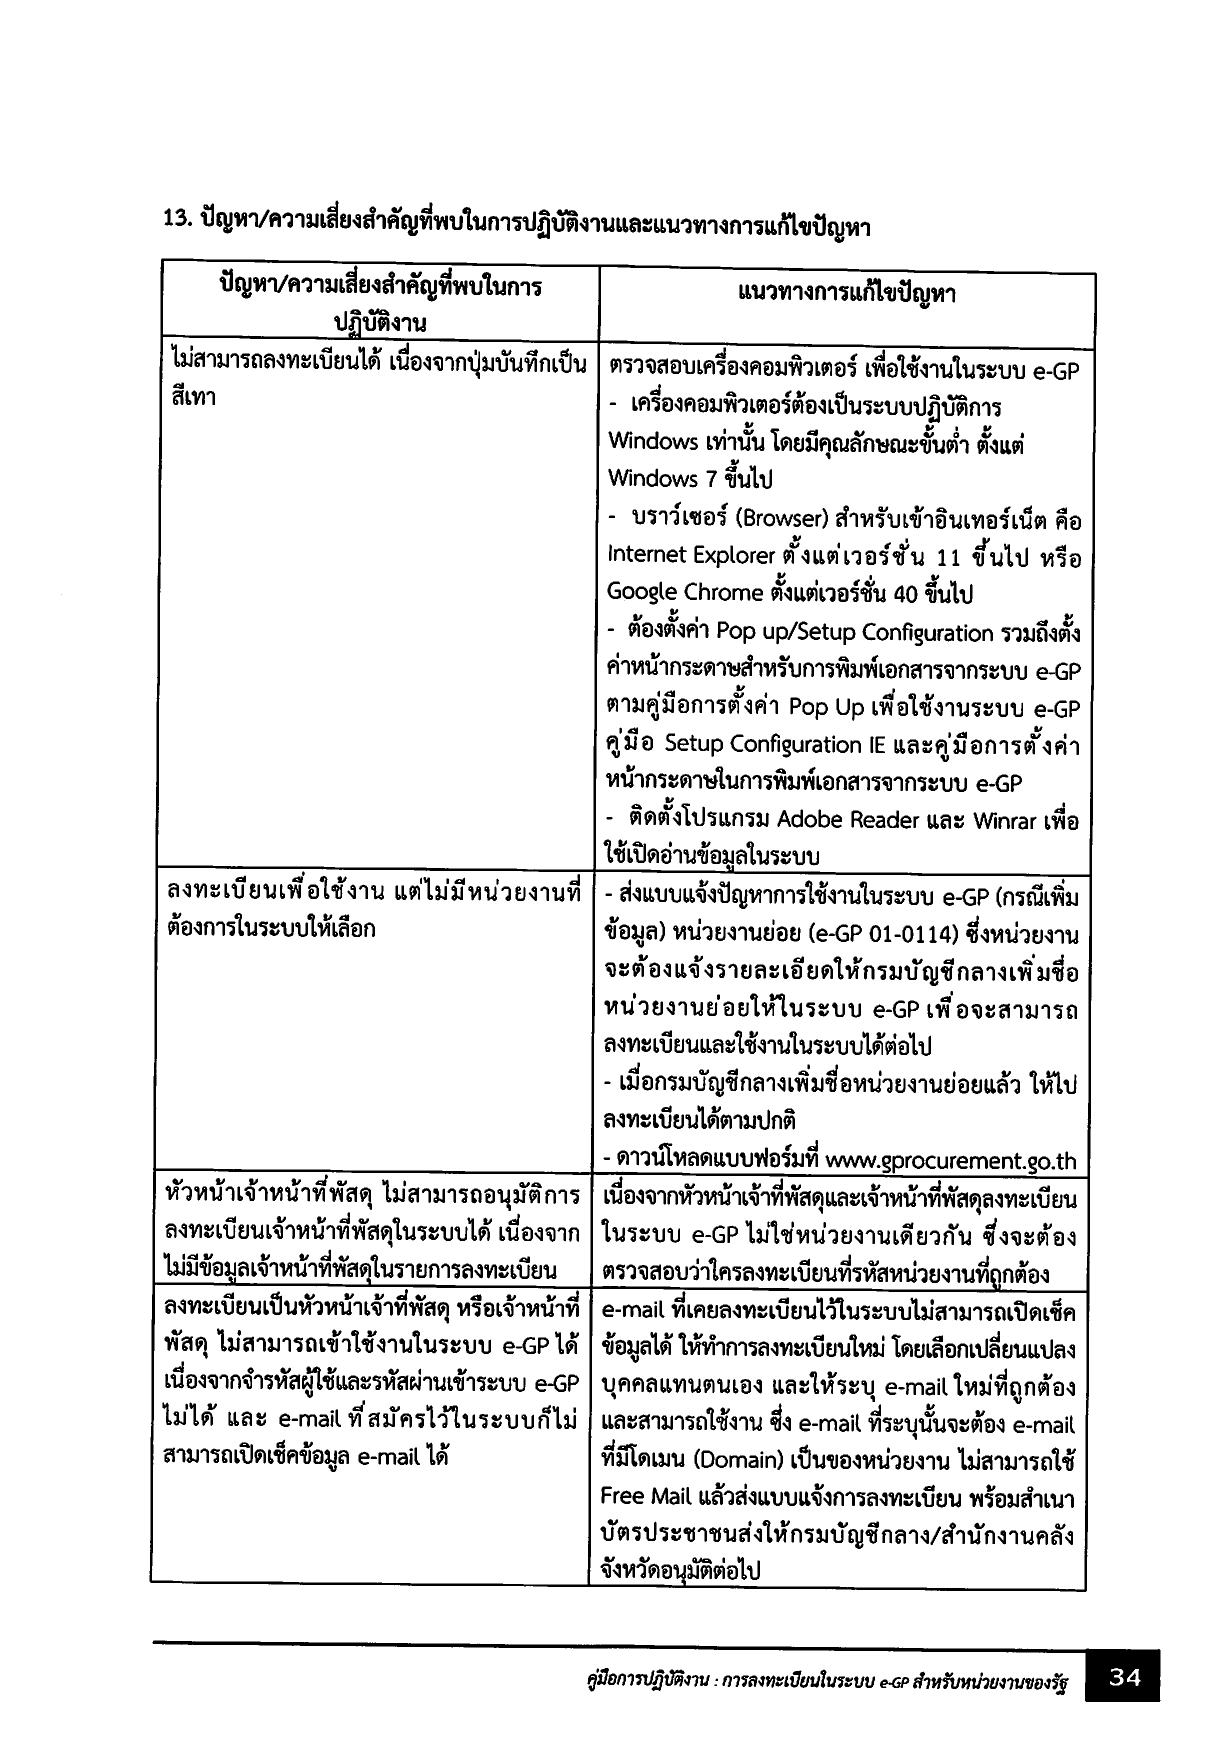 13. ปัญหา/ความเสี่ยงสำคัญที่พบในการปฏิบัติงานและแนวทางการแก้ไขปัญหา
ปัญหา/ความเสี่ยงสำคัญที่พบในการ
ปฏิบัติงาน
แนวทางการแก้ไขปัญหา
ไม่สามารถลงทะเบียนได้ เนื่องจากปุ่มบันทึกเป็น
สีเทา
ตรวจสอบเครื่องคอมพิวเตอร์ เพื่อใช้งานในระบบ e-GP
- เครื่องคอมพิวเตอร์ต้องเป็นระบบปฏิบัติการ
Windows เท่านั้น โดยมีคุณลักษณะขั้นต่ำ ตั้งแต่
Windows 7 ขึ้นไป
- บราว์เซอร์ (Browser) สำหรับเข้าอินเทอร์เน็ต คือ
Internet Explorer ตั้งแต่เวอร์ชั่น 11 ขึ้นไป หรือ
Google Chrome ตั้งแต่เวอร์ชั่น 40 ขึ้นไป
- ต้องตั้งค่า Pop up/Setup Configuration รวมถึงตั้ง
ค่าหน้ากระดาษสำหรับการพิมพ์เอกสารจากระบบ e-GP
ตามคู่มือการตั้งค่า Pop Up เพื่อใช้งานระบบ e-GP
คู่มือ Setup Configuration IE และคู่มือการตั้งค่า
หน้ากระดาษในการพิมพ์เอกสารจากระบบ e-GP
- ติดตั้งโปรแกรม Adobe Reader และ Winrar เพื่อ
ใช้เปิดอ่านข้อมูลในระบบ
ลงทะเบียนเพื่อใช้งาน แต่ไม่มีหน่วยงานที่
ต้องการในระบบให้เลือก
- ส่งแบบแจ้งปัญหาการใช้งานในระบบ e-GP (กรณีเพิ่ม
ข้อมูล) หน่วยงานย่อย (e-GP 01-0114) ซึ่งหน่วยงาน
จะต้องแจ้งรายละเอียดให้กรมบัญชีกลางเพิ่มชื่อ
หน่วยงานย่อยให้ในระบบ e-GP เพื่อจะสามารถ
ลงทะเบียนและใช้งานในระบบได้ต่อไป
- เมื่อกรมบัญชีกลางเพิ่มชื่อหน่วยงานย่อยแล้ว ให้ไป
ลงทะเบียนได้ตามปกติ
- ดาวน์โหลดแบบฟอร์มที่ www.gprocurement.go.th
หัวหน้าเจ้าหน้าที่พัสดุ ไม่สามารถอนุมัติการ
ลงทะเบียนเจ้าหน้าที่พัสดุในระบบได้ เนื่องจาก
ไม่มีข้อมูลเจ้าหน้าที่พัสดุในรายการลงทะเบียน
เนื่องจากหัวหน้าเจ้าที่พัสดุและเจ้าหน้าที่พัสดุลงทะเบียน
ในระบบ e-GP ไม่ใช่หน่วยงานเดียวกัน ซึ่งจะต้อง
ตรวจสอบว่าใครลงทะเบียนที่รหัสหน่วยงานที่ถูกต้อง
ลงทะเบียนเป็นหัวหน้าเจ้าที่พัสดุ หรือเจ้าหน้าที่
พัสดุ ไม่สามารถเข้าใช้งานในระบบ e-GP ได้
เนื่องจากจำรหัสผู้ใช้และรหัสผ่านเข้าระบบ e-GP
ไม่ได้ และ e-mail ที่สมัครไว้ในระบบก็ไม่
สามารถเปิดเช็คข้อมูล e-mail ได้
e-mail ที่เคยลงทะเบียนไว้ในระบบไม่สามารถเปิดเช็ค
ข้อมูลได้ ให้ทำการลงทะเบียนใหม่ โดยเลือกเปลี่ยนแปลง
บุคคลแทนตนเอง และให้ระบุ e-mail ใหม่ที่ถูกต้อง
และสามารถใช้งาน ซึ่ง e-mail ที่ระบุนั้นจะต้อง e-mail
ที่มีโดเมน (Domain) เป็นของหน่วยงาน ไม่สามารถใช้
Free Mail แล้วส่งแบบแจ้งการลงทะเบียน พร้อมสำเนา
บัตรประชาชนส่งให้กรมบัญชีกลาง/สำนักงานคลัง
จังหวัดอนุมัติต่อไป
คู่มือการปฏิบัติงาน : การลงทะเบียนในระบบ e-GP สำหรับหน่วยงานของรัฐ
34